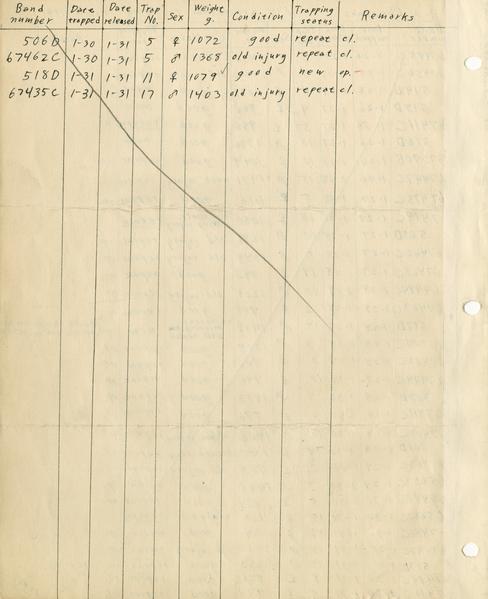 Band number Date trapped Date released Trap No. Sex Weight g. Condition Trapping status Remarks
506D 1-30 1-31 5 ♀ 1072 good repeat cl.
67462C 1-30 1-31 5 ♂ 1368 old injury repeat cl.
518D 1-31 1-31 11 ♀ 1079 ✓ good new op. -
67435C 1-31 1-31 17 ♂ 1403 old injury repeat cl.